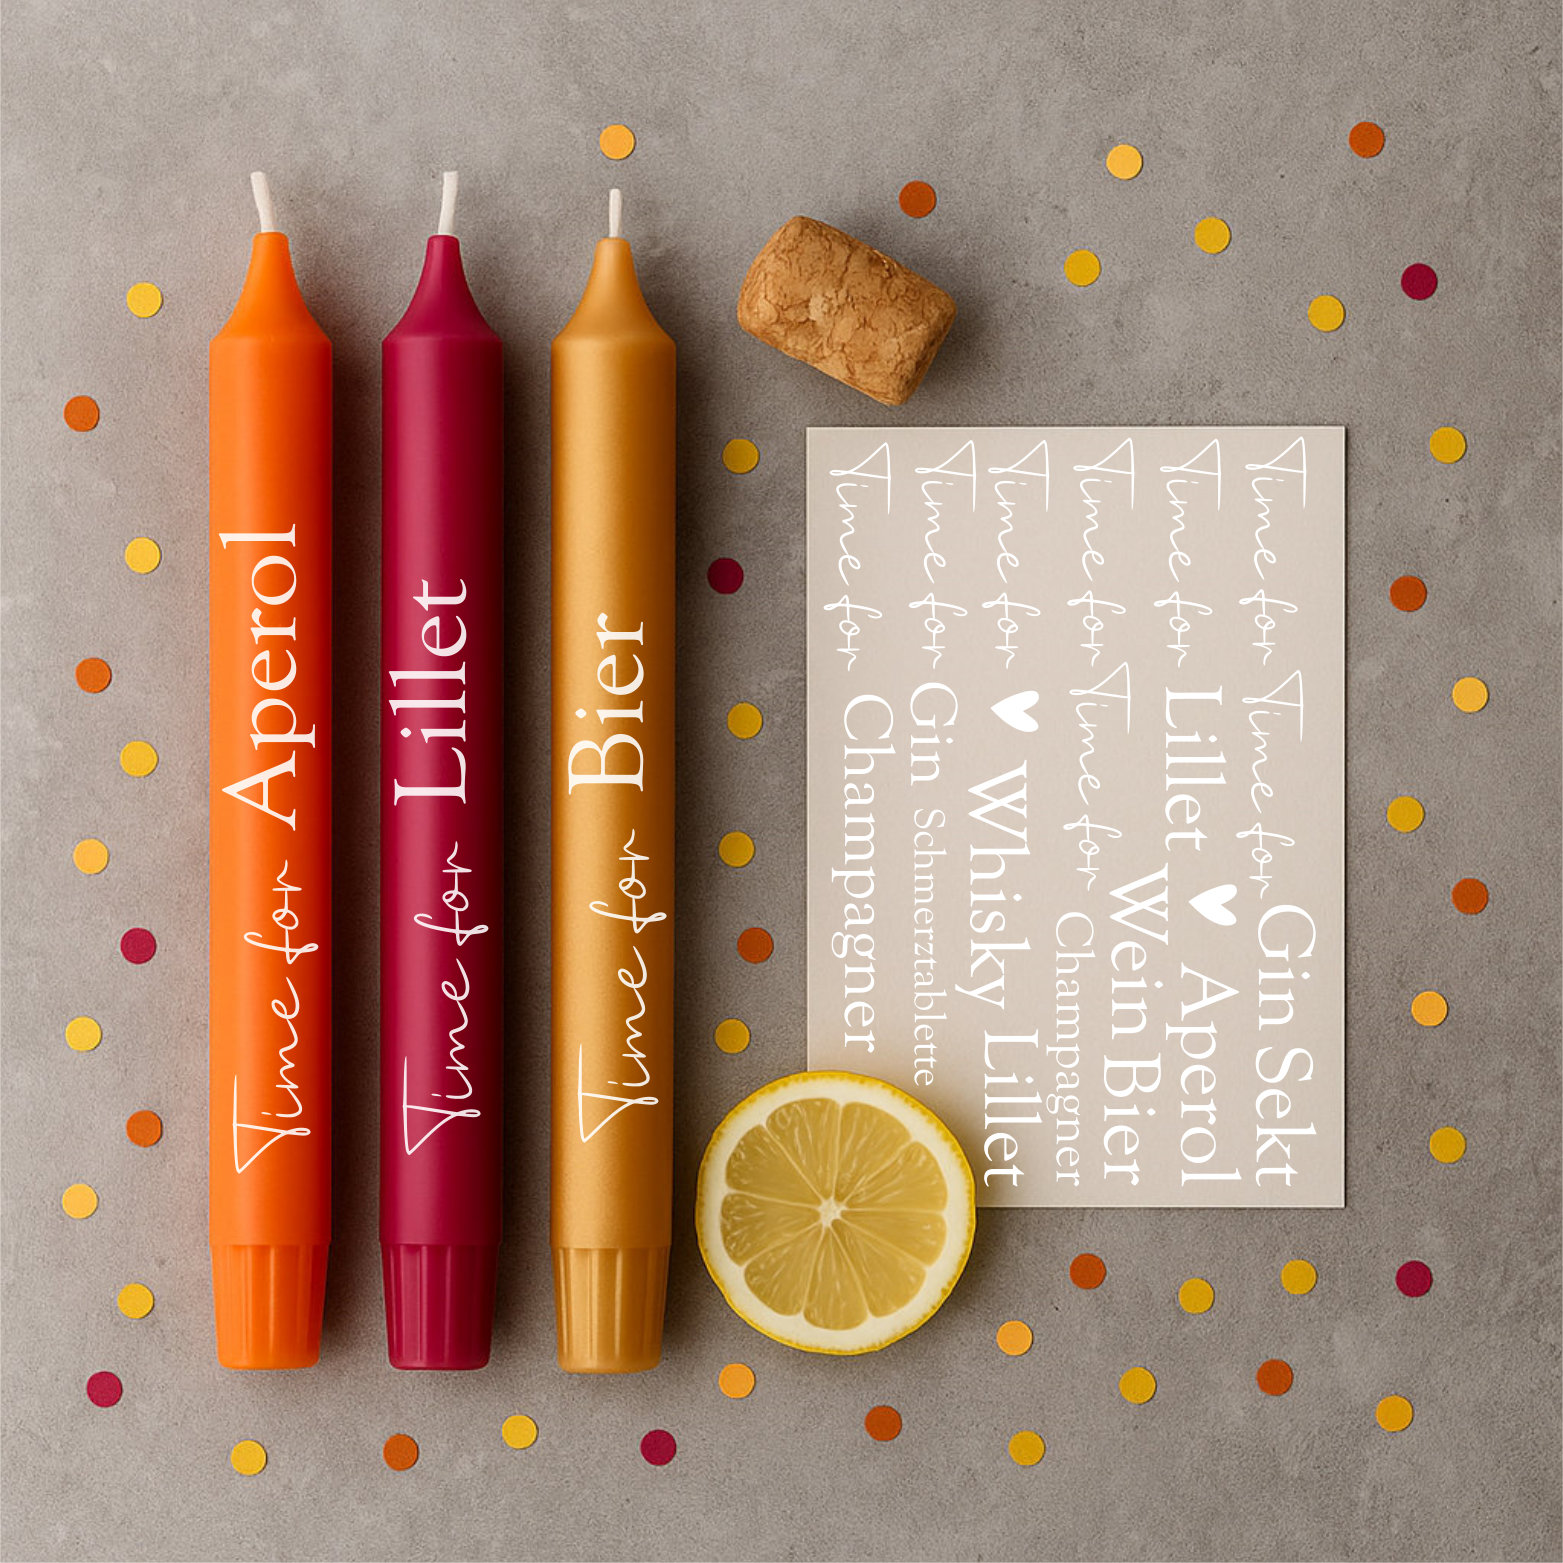 Time for Aperol
Time for Lillet
Time for Bier
Time for Time for Gin Sekt
Time for Lillet ♥ Aperol
Time for Time for Wein Bier
Champagner
Time for ♥ Whisky Lillet
Time for Gin Schmerztablette
Time for Champagner